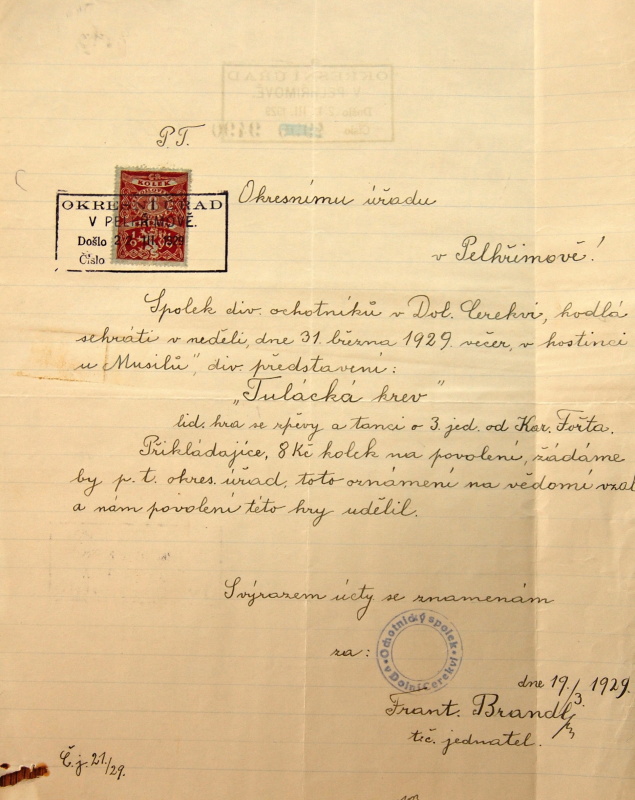 P.T.
KOLEK
OKRESNÍ ÚŘAD
V PELHŘIMOVĚ.
Došlo 2 III. 1929
Číslo
Okresnímu úřadu
v Pelhřimově!
Spolek div. ochotníků v Dol. Cerekvi, hodlá
sehráti v neděli, dne 31. března 1929 večer, v hostinci
u Musilů", div. představení:
„Tulácká krev"
lid. hra se zpěvy a tanci o 3. jed. od Kar. Fořta.
Přikládajíce, 8 Kč kolek na povolení, žádáme
by p. t. okres. úřad, toto oznámení na vědomí vzal
a nám povolení této hry udělil.
S výrazem úcty se znamenám
za:
Ochotnický spolek
v Dolní Cerekvi
dne 19./3. 1929.
Frant. Brandl
t.č. jednatel.
Č.j. 21/29.